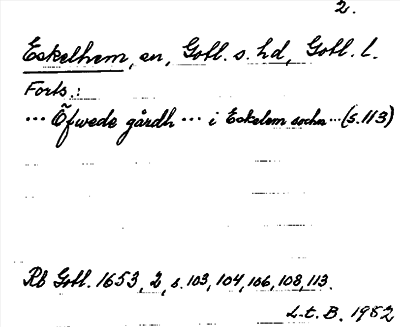 2.
Eskelhem, sn, Gotl. s. hd, Gotl. l.
Forts.:
... Öfwede gårdh ... i Eskelem sochn ... (s. 113)
Rb Gotl. 1653, 2, s. 103, 104, 106, 108, 113.
L.t. B. 1982